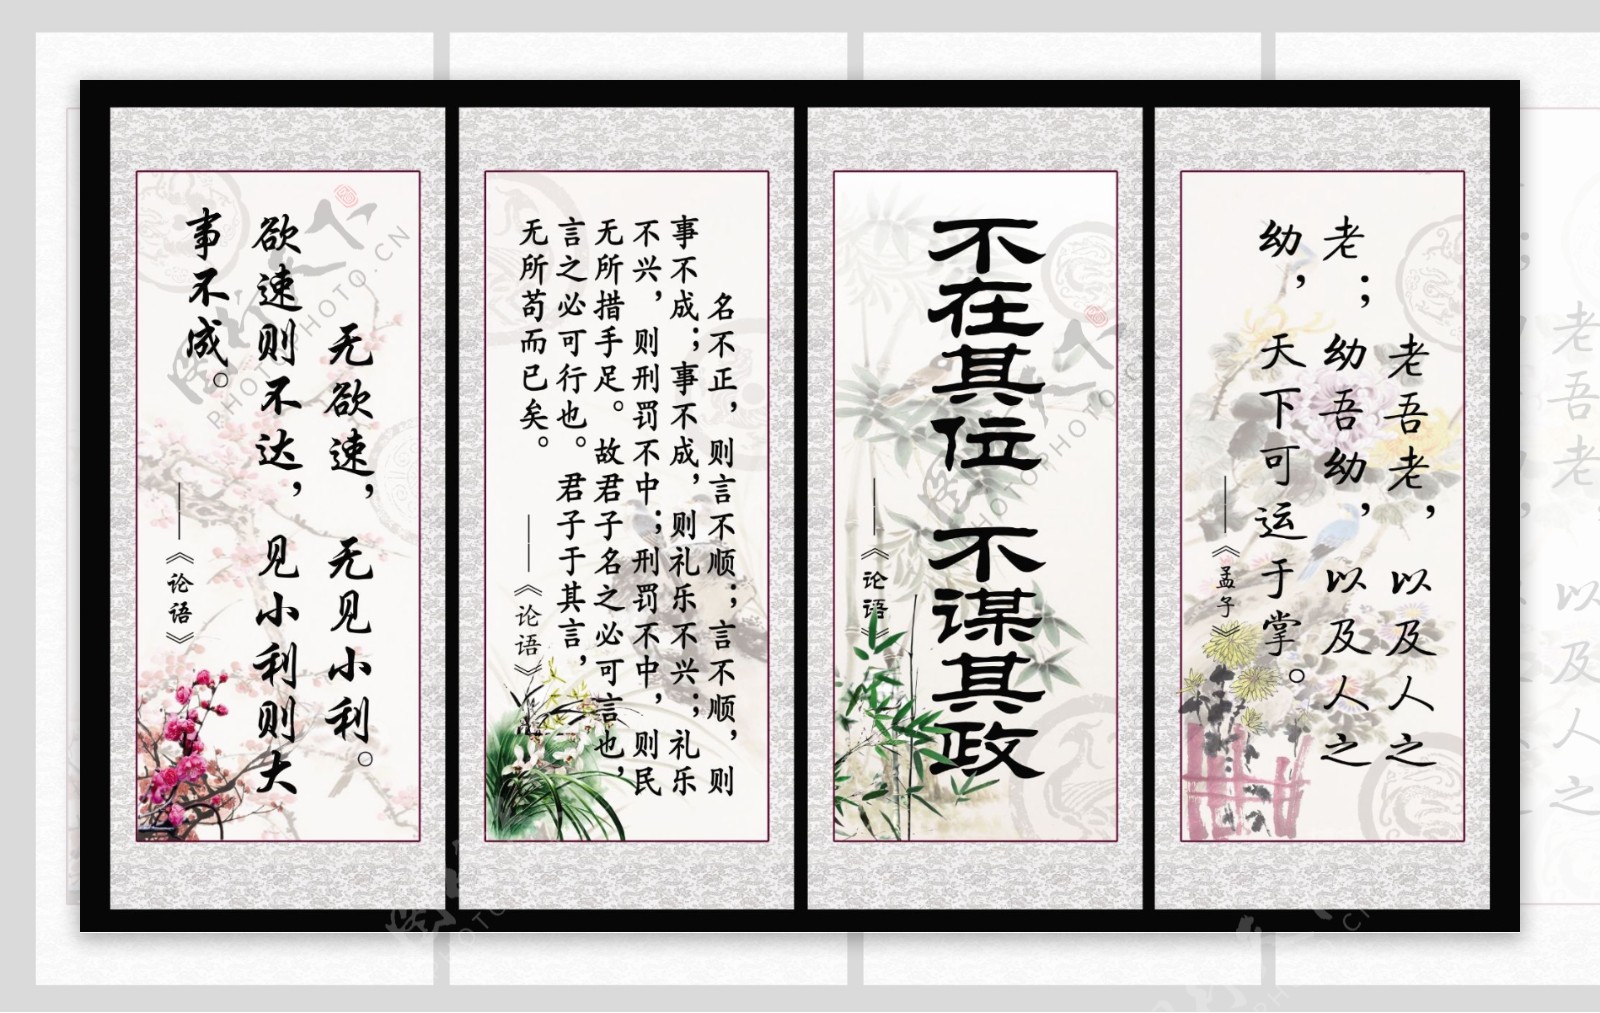 无欲速，无见小利。
欲速则不达，见小利则大
事不成。
——《论语》
名不正，则言不顺；言不顺，则
事不成；事不成，则礼乐不兴；礼乐
不兴，则刑罚不中；刑罚不中，则民
无所措手足。故君子名之必可言也，
言之必可行也。君子于其言，
无所苟而已矣。
——《论语》
不在其位 不谋其政
——《论语》
老吾老，以及人之
老；幼吾幼，以及人之
幼，天下可运于掌。
——《孟子》
PHOTO.CN